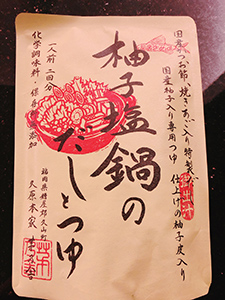 国産かつお節、焼きあご入り特製だし
国産柚子入り専用つゆ
仕上げの柚子皮入り
柚子塩鍋の
だしとつゆ
一人前 二回分
化学調味料・保存料無添加
福岡県糟屋郡久山町
久原本家 茅乃舎